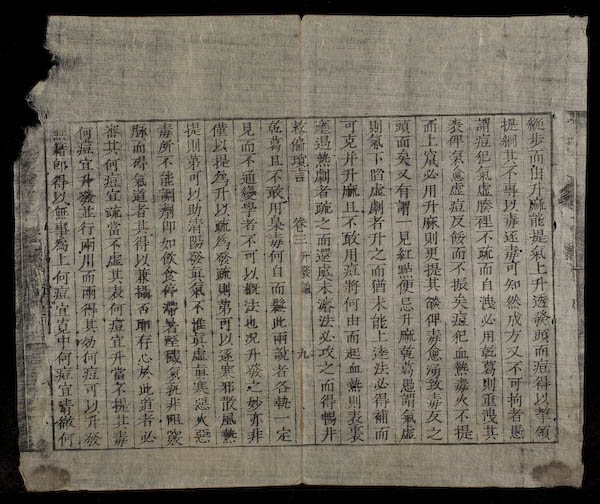 步而由升麻能提氣上升透發頭面痘得以挈領
提綱其不專以毒逐毒可知然成方又不可拘者愚
謂痘犯氣虛腠裡不疏而自洩必用乾葛則重洩其
表俾氣愈虛痘反餒而不振矣痘犯血熱毒火不提
而上竄必用升麻則更提其燄俾毒愈湧致毒反之
頭面矣又有謂一見紅點便忌升麻乾葛愚謂氣虛
則氣下陷虛劇者升之而猶未能上達法必得補而
可克升升麻且不敢用痘將何由而起血熱則表裏
壅遏熱劇者疏之而還慮未濬法必攻之而得暢升
救偏瑣言 卷三 升發論 九
乾葛且不敢用梟毒何自而鬆此兩說者各執一定
見而不通變學者不可以概法也况升發之妙亦非
僅以提為升以疏為發疏則第可以逐寒邪散風熱
提則第可以助清陽發眞氣不惟眞虛眞寒惡火惡
毒所不能調劑即如飲食停滯暑穢氣非阻竅
脉而碍氣道者其得以兼攝否耶存心於此道者必
審其何痘宜疏當不虛其表何痘宜升當不提其毒
何痘宜升發並行兩用而兩得其効何痘可以升發
無藉即得以無事為上何痘宜實中何痘宜清徹何